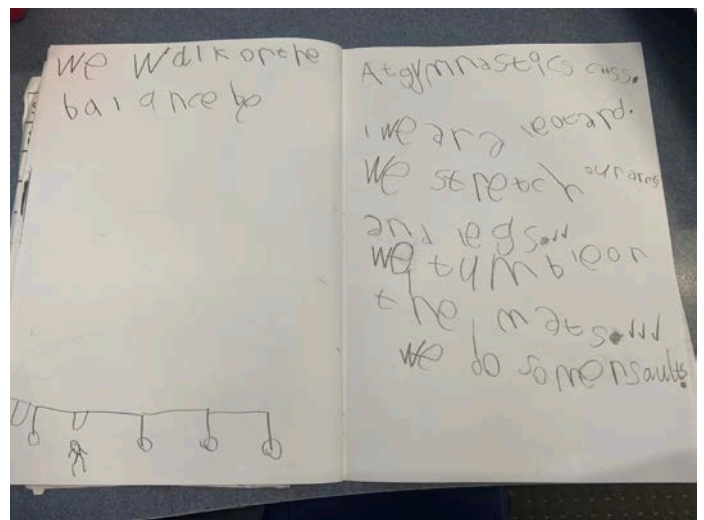 We Walk on the
balance be
At gymnastics cass.
i wear a leotard.
We stretch our arms
and legs...
we tumble on
the mats....
we do somersaults.